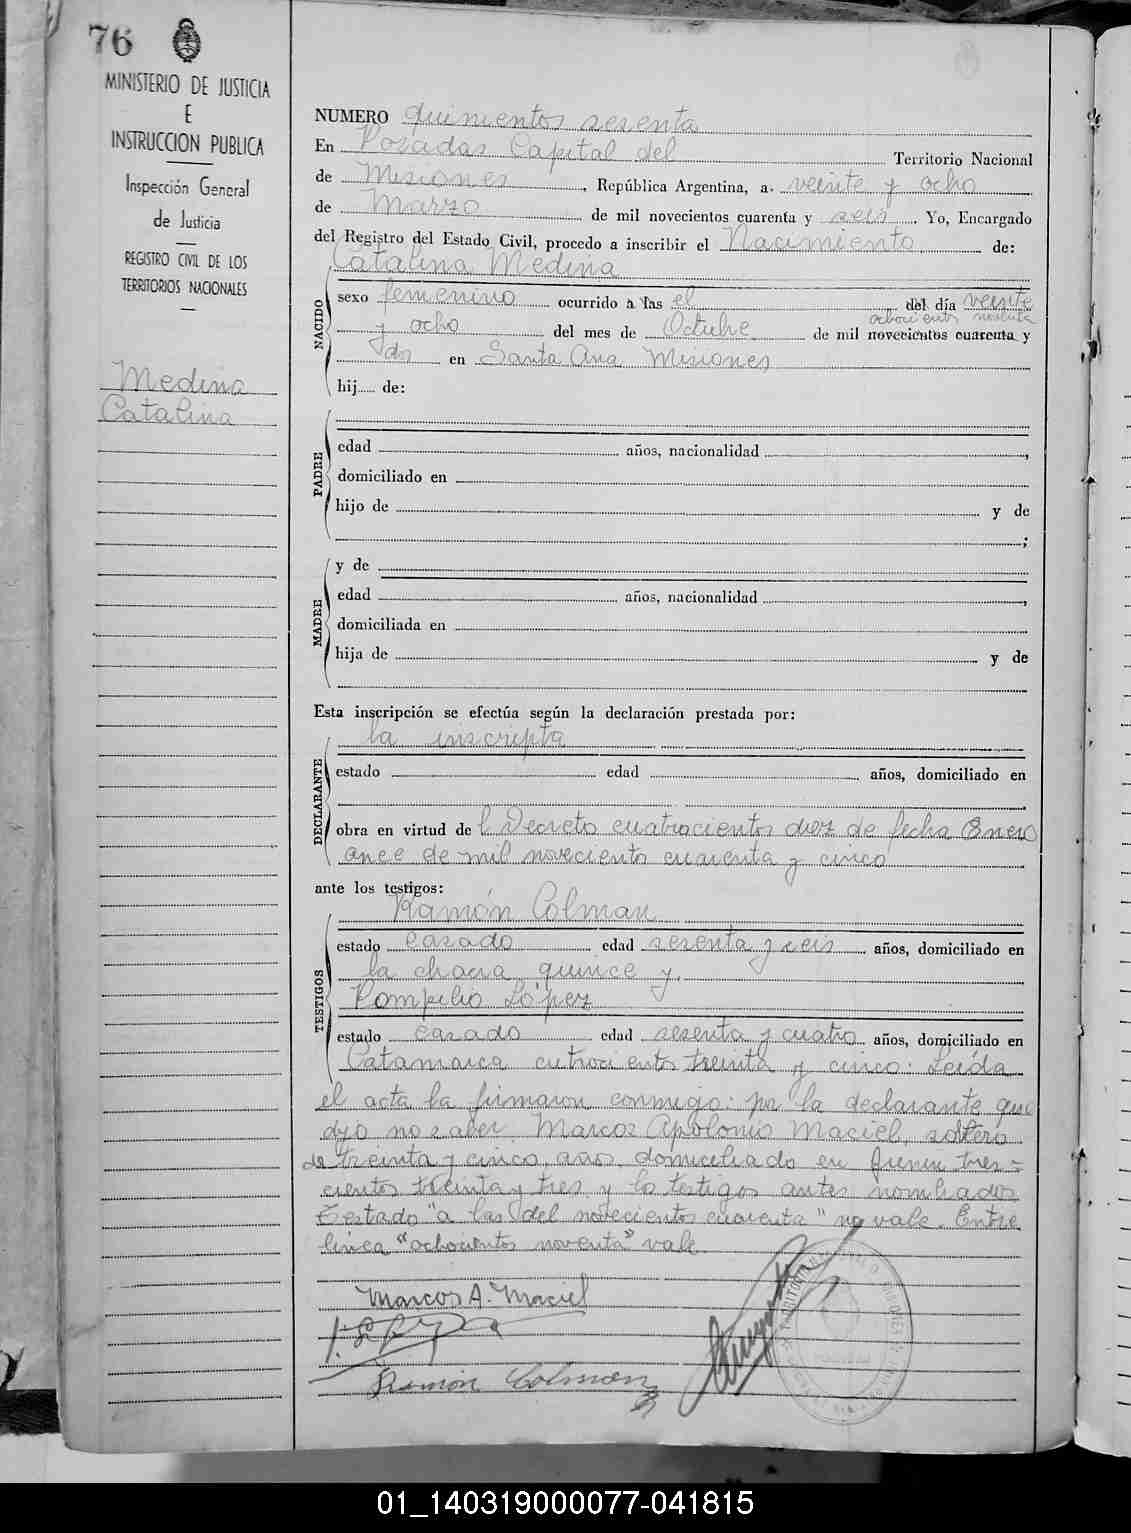 76
MINISTERIO DE JUSTICIA
E
INSTRUCCION PUBLICA
Inspección General
de Justicia
REGISTRO CIVIL DE LOS
TERRITORIOS NACIONALES
Medina
Catalina
NUMERO quinientos sesenta
En Posadas Capital del Territorio Nacional
de Misiones, República Argentina, a veinte y ocho
de Marzo de mil novecientos cuarenta y seis. Yo, Encargado
del Registro del Estado Civil, procedo a inscribir el Nacimiento de:
Catalina Medina
NACIDO
sexo femenino ocurrido a las el del día veinte
ochocientos noventa
y ocho del mes de Octubre de mil novecientos cuarenta y
dos en Santa Ana Misiones
hij de:
PADRE
edad años, nacionalidad ,
domiciliado en
hijo de y de
;
MADRE
y de
edad años, nacionalidad ,
domiciliada en
hija de y de
Esta inscripción se efectúa según la declaración prestada por:
la inscripta
DECLARANTE
estado edad años, domiciliado en
obra en virtud del Decreto cuatrocientos diez de fecha Enero
once de mil novecientos cuarenta y cinco
ante los testigos:
Ramón Colman
TESTIGOS
estado casado edad sesenta y seis años, domiciliado en
la chacra quince y
Pompilio López
estado casado edad sesenta y cuatro años, domiciliado en
Catamarca cutrocientos treinta y cinco. Leída
el acta la firmaron conmigo: por la declarante que
dijo no saber Marcos Apolonio Maciel, soltero
de treinta y cinco años domiciliado en Junin tres=
cientos treinta y tres y los testigos antes nombrados
Testado "a las del novecientos cuarenta" no vale. Entre
linea "ochocientos noventa" vale.
Marcos A. Maciel
Ramón Colman
01_140319000077-041815